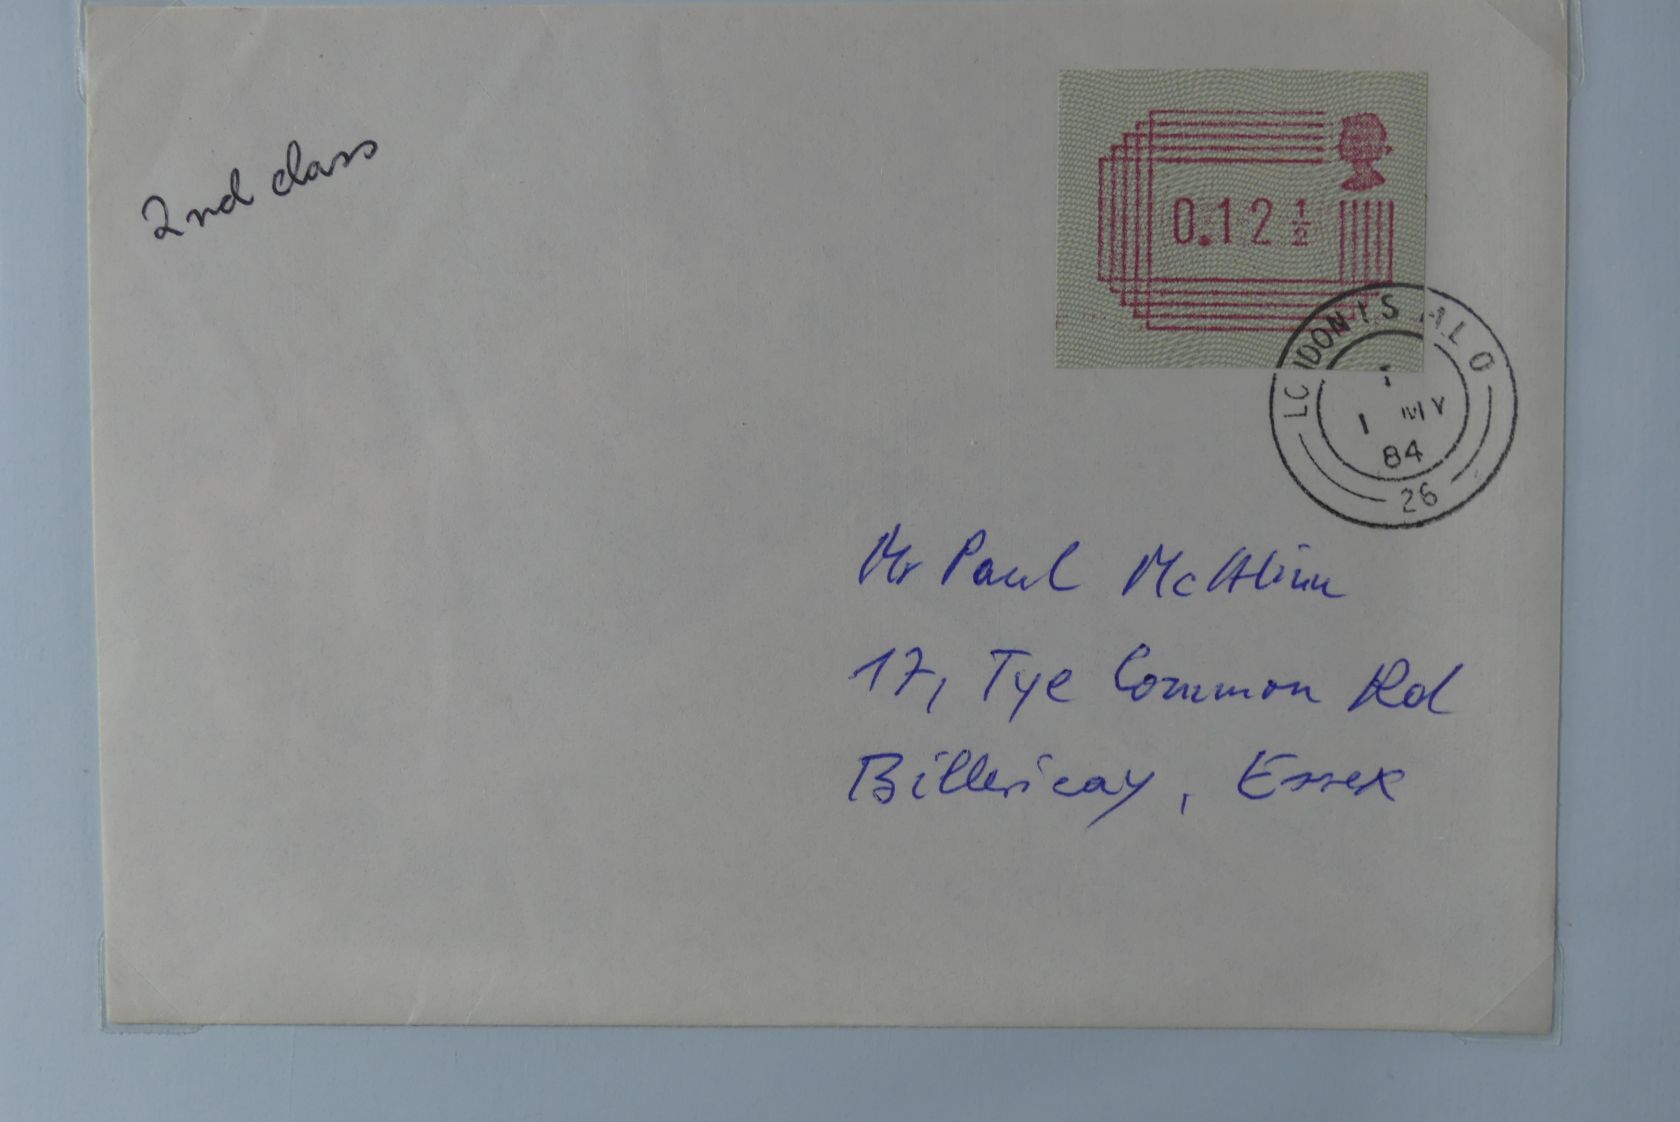 2nd class
0.12½
LONDON I.S. M.L.O
1 MY
84
26
Mr Paul McAlinn
17, Tye Common Rd
Billericay, Essex